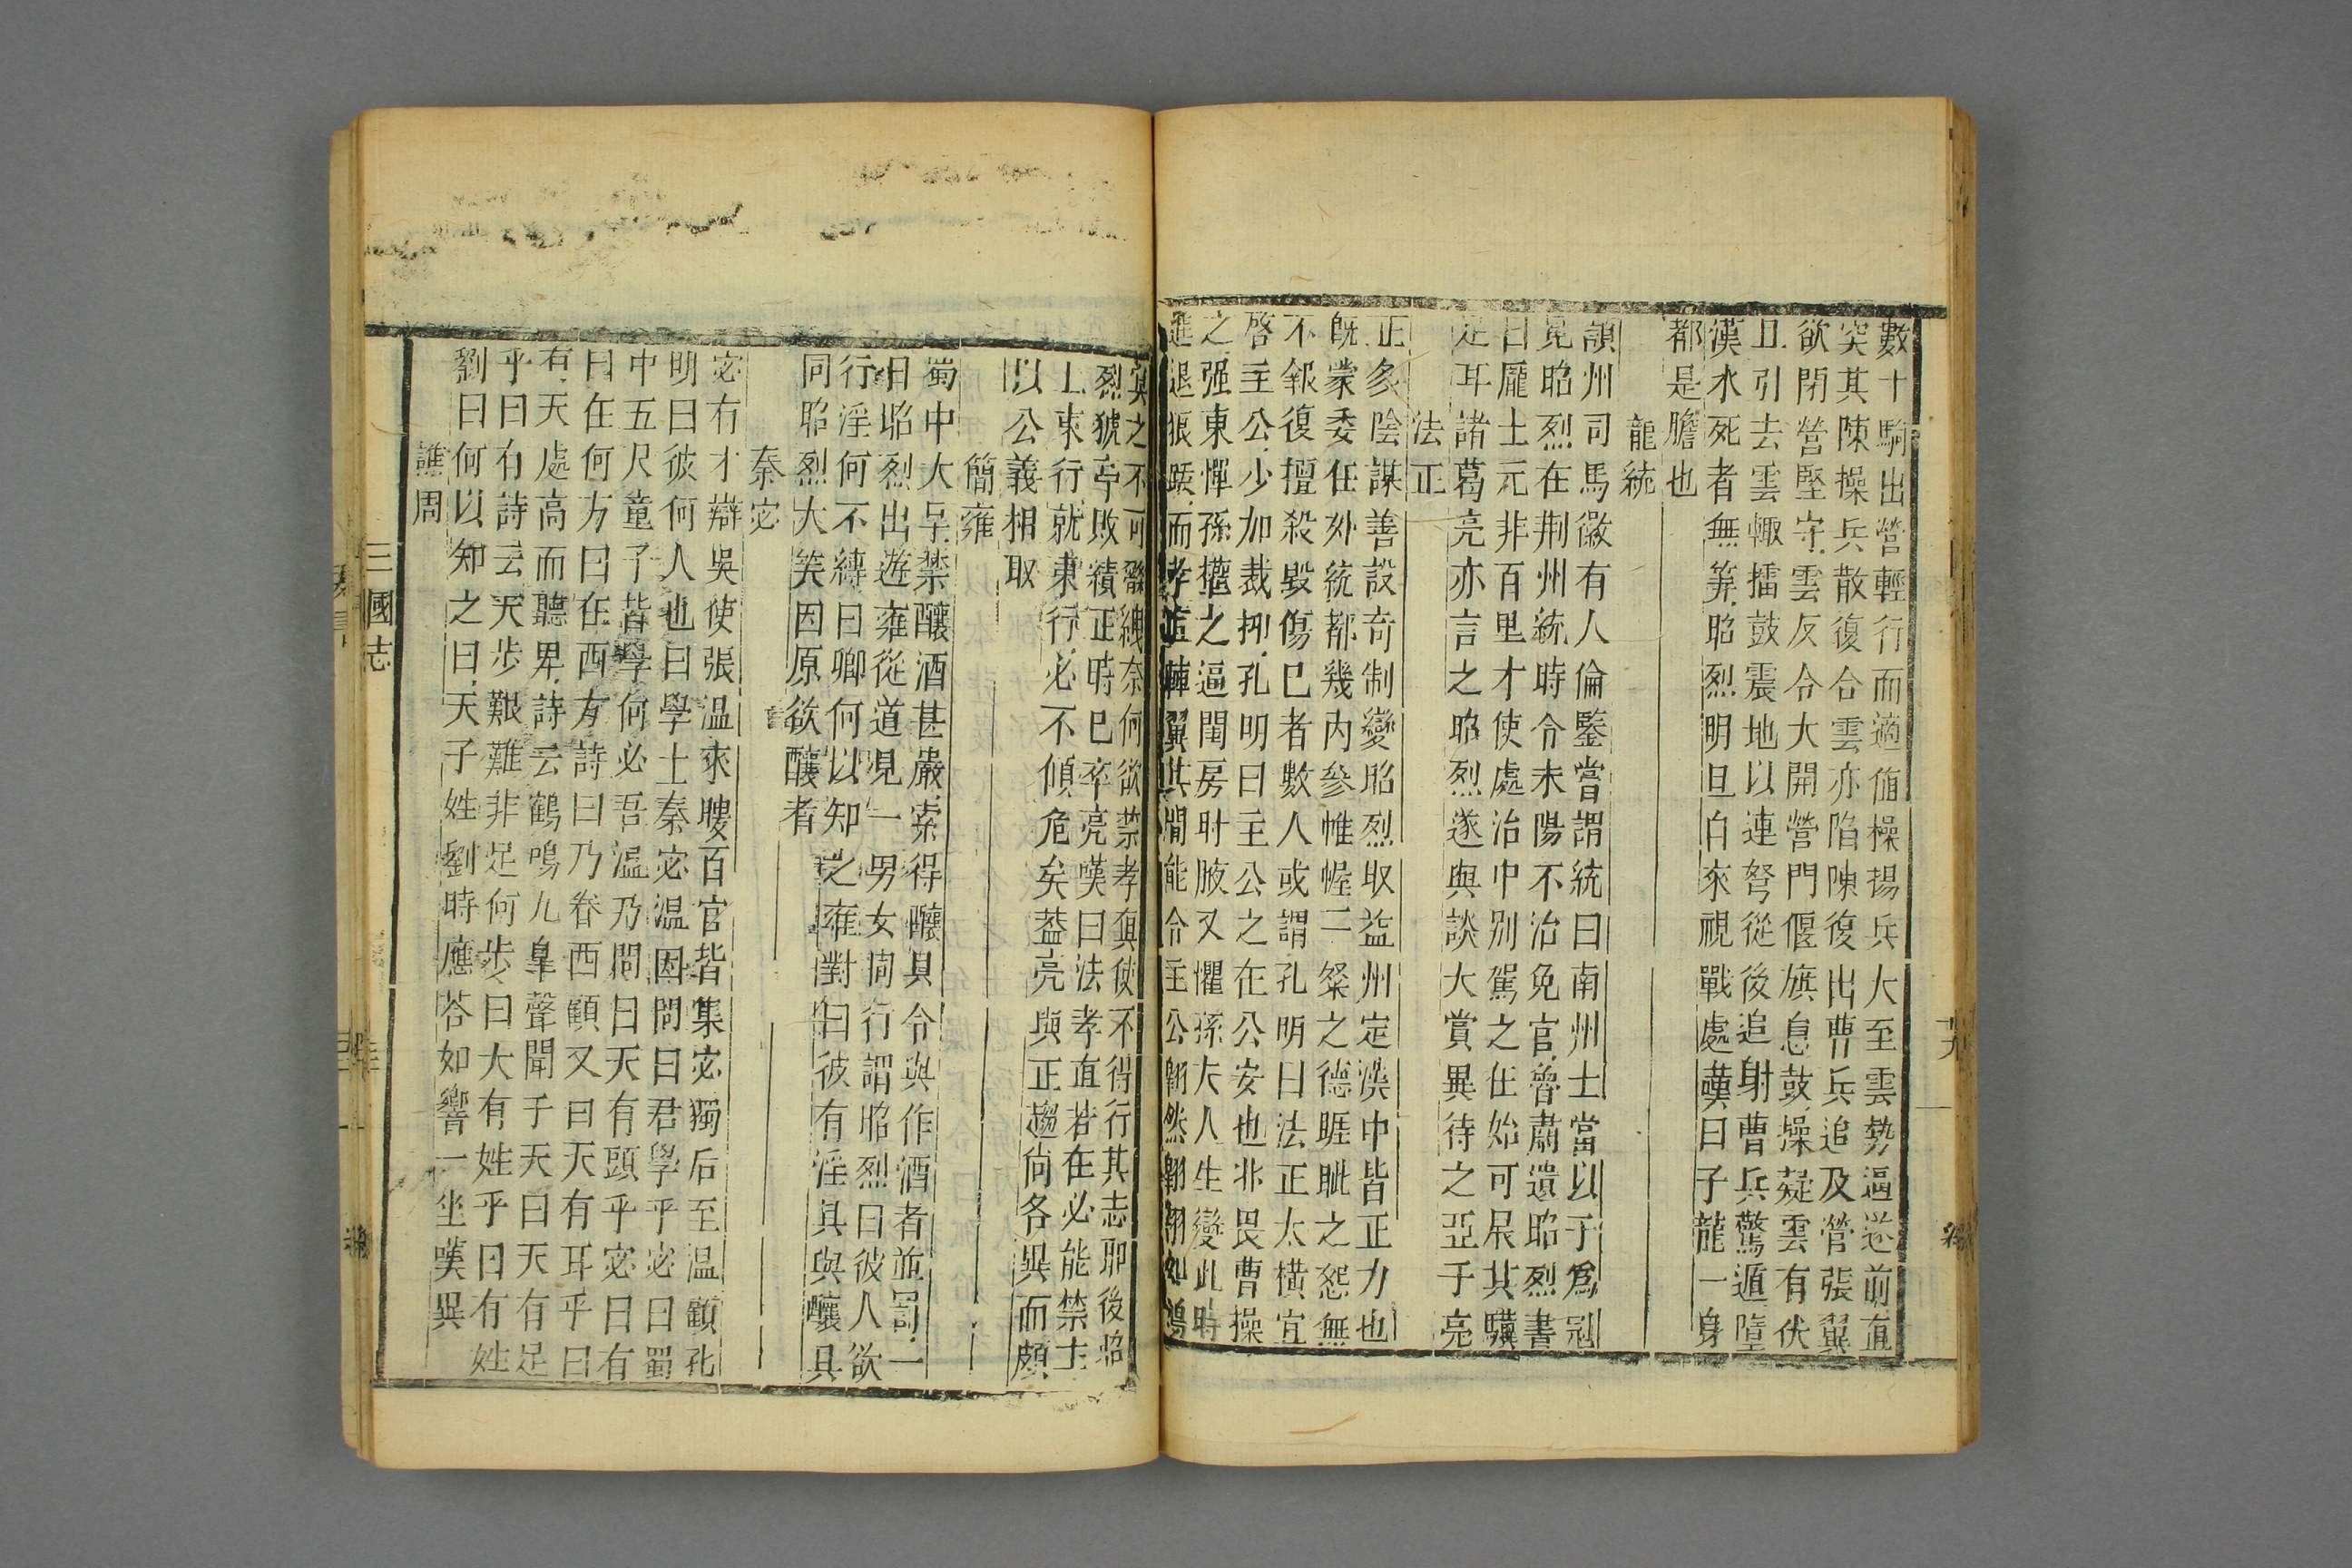 數十騎出營輕行而適値操揚兵大至雲勢逼遂前直
突其陳操兵散復合雲亦陷陳復出曹兵追及營張翼
欲閉營堅守雲反令大開營門偃旗息鼓操疑雲有伏
且引去雲輙擂鼓震地以連弩從後追射曹兵驚遁墮
漢水死者無筭昭烈明旦自來視戰處嘆曰子龍一身
都是膽也
龐統
潁州司馬徽有人倫鑒嘗謂統曰南州士當以于爲冠
見昭烈在荆州統時令耒陽不治免官魯肅遺昭烈書
曰龐士元非百里才使處治中别駕之任始可展其驥
足耳諸葛亮亦言之昭烈遂與談大賞異待之亞于亮
法正
正多陰謀善設奇制變昭烈取益州定漢中皆正力也
旣蒙委任外統都幾内參帷幄一餐之德睚眦之怨無
不報復擅殺毀傷巳者數人或謂孔明曰法正太横宜
啓主公少加裁抑孔明曰主公之在公安也北畏曹操
之强東憚孫權之逼閨房肘腋又懼孫夫人生變此時
進退狼跋而孝直輔翼其間能令主公翻然翱翔如鴻
寞之不可繇紲奈何欲禁孝與使不得行其志耶後昭
烈猇亭敗績正時巳卒亮嘆曰法孝直若在必能禁主
上東行就東行必不傾危矣葢亮與正趨尚各異而頗
以公義相取
簡雍
蜀中大旱禁釀酒甚嚴索得釀具令與作酒者並罰一
日昭烈出遊雍從道見一男女同行謂昭烈曰彼人欲
行淫何不縛曰卿何以知之雍對曰彼有淫具與釀具
同昭烈大笑因原欲釀者
秦宓
宓有才辯吳使張温來聘百官皆集宓獨后至温顧孔
明曰彼何人也曰學士秦宓温因問曰君學乎宓曰蜀
中五尺童子皆學何必吾温乃問曰天有頭乎宓曰有
曰在何方曰在西方詩曰乃眷西顧又曰天有耳乎曰
有天處高而聽卑詩云鶴鳴九臯聲聞于天曰天有足
乎曰有詩云天步艱難非足何步曰大有姓乎曰有姓
劉曰何以知之曰天子姓劉時應荅如響一坐嘆異
譙周
三國志